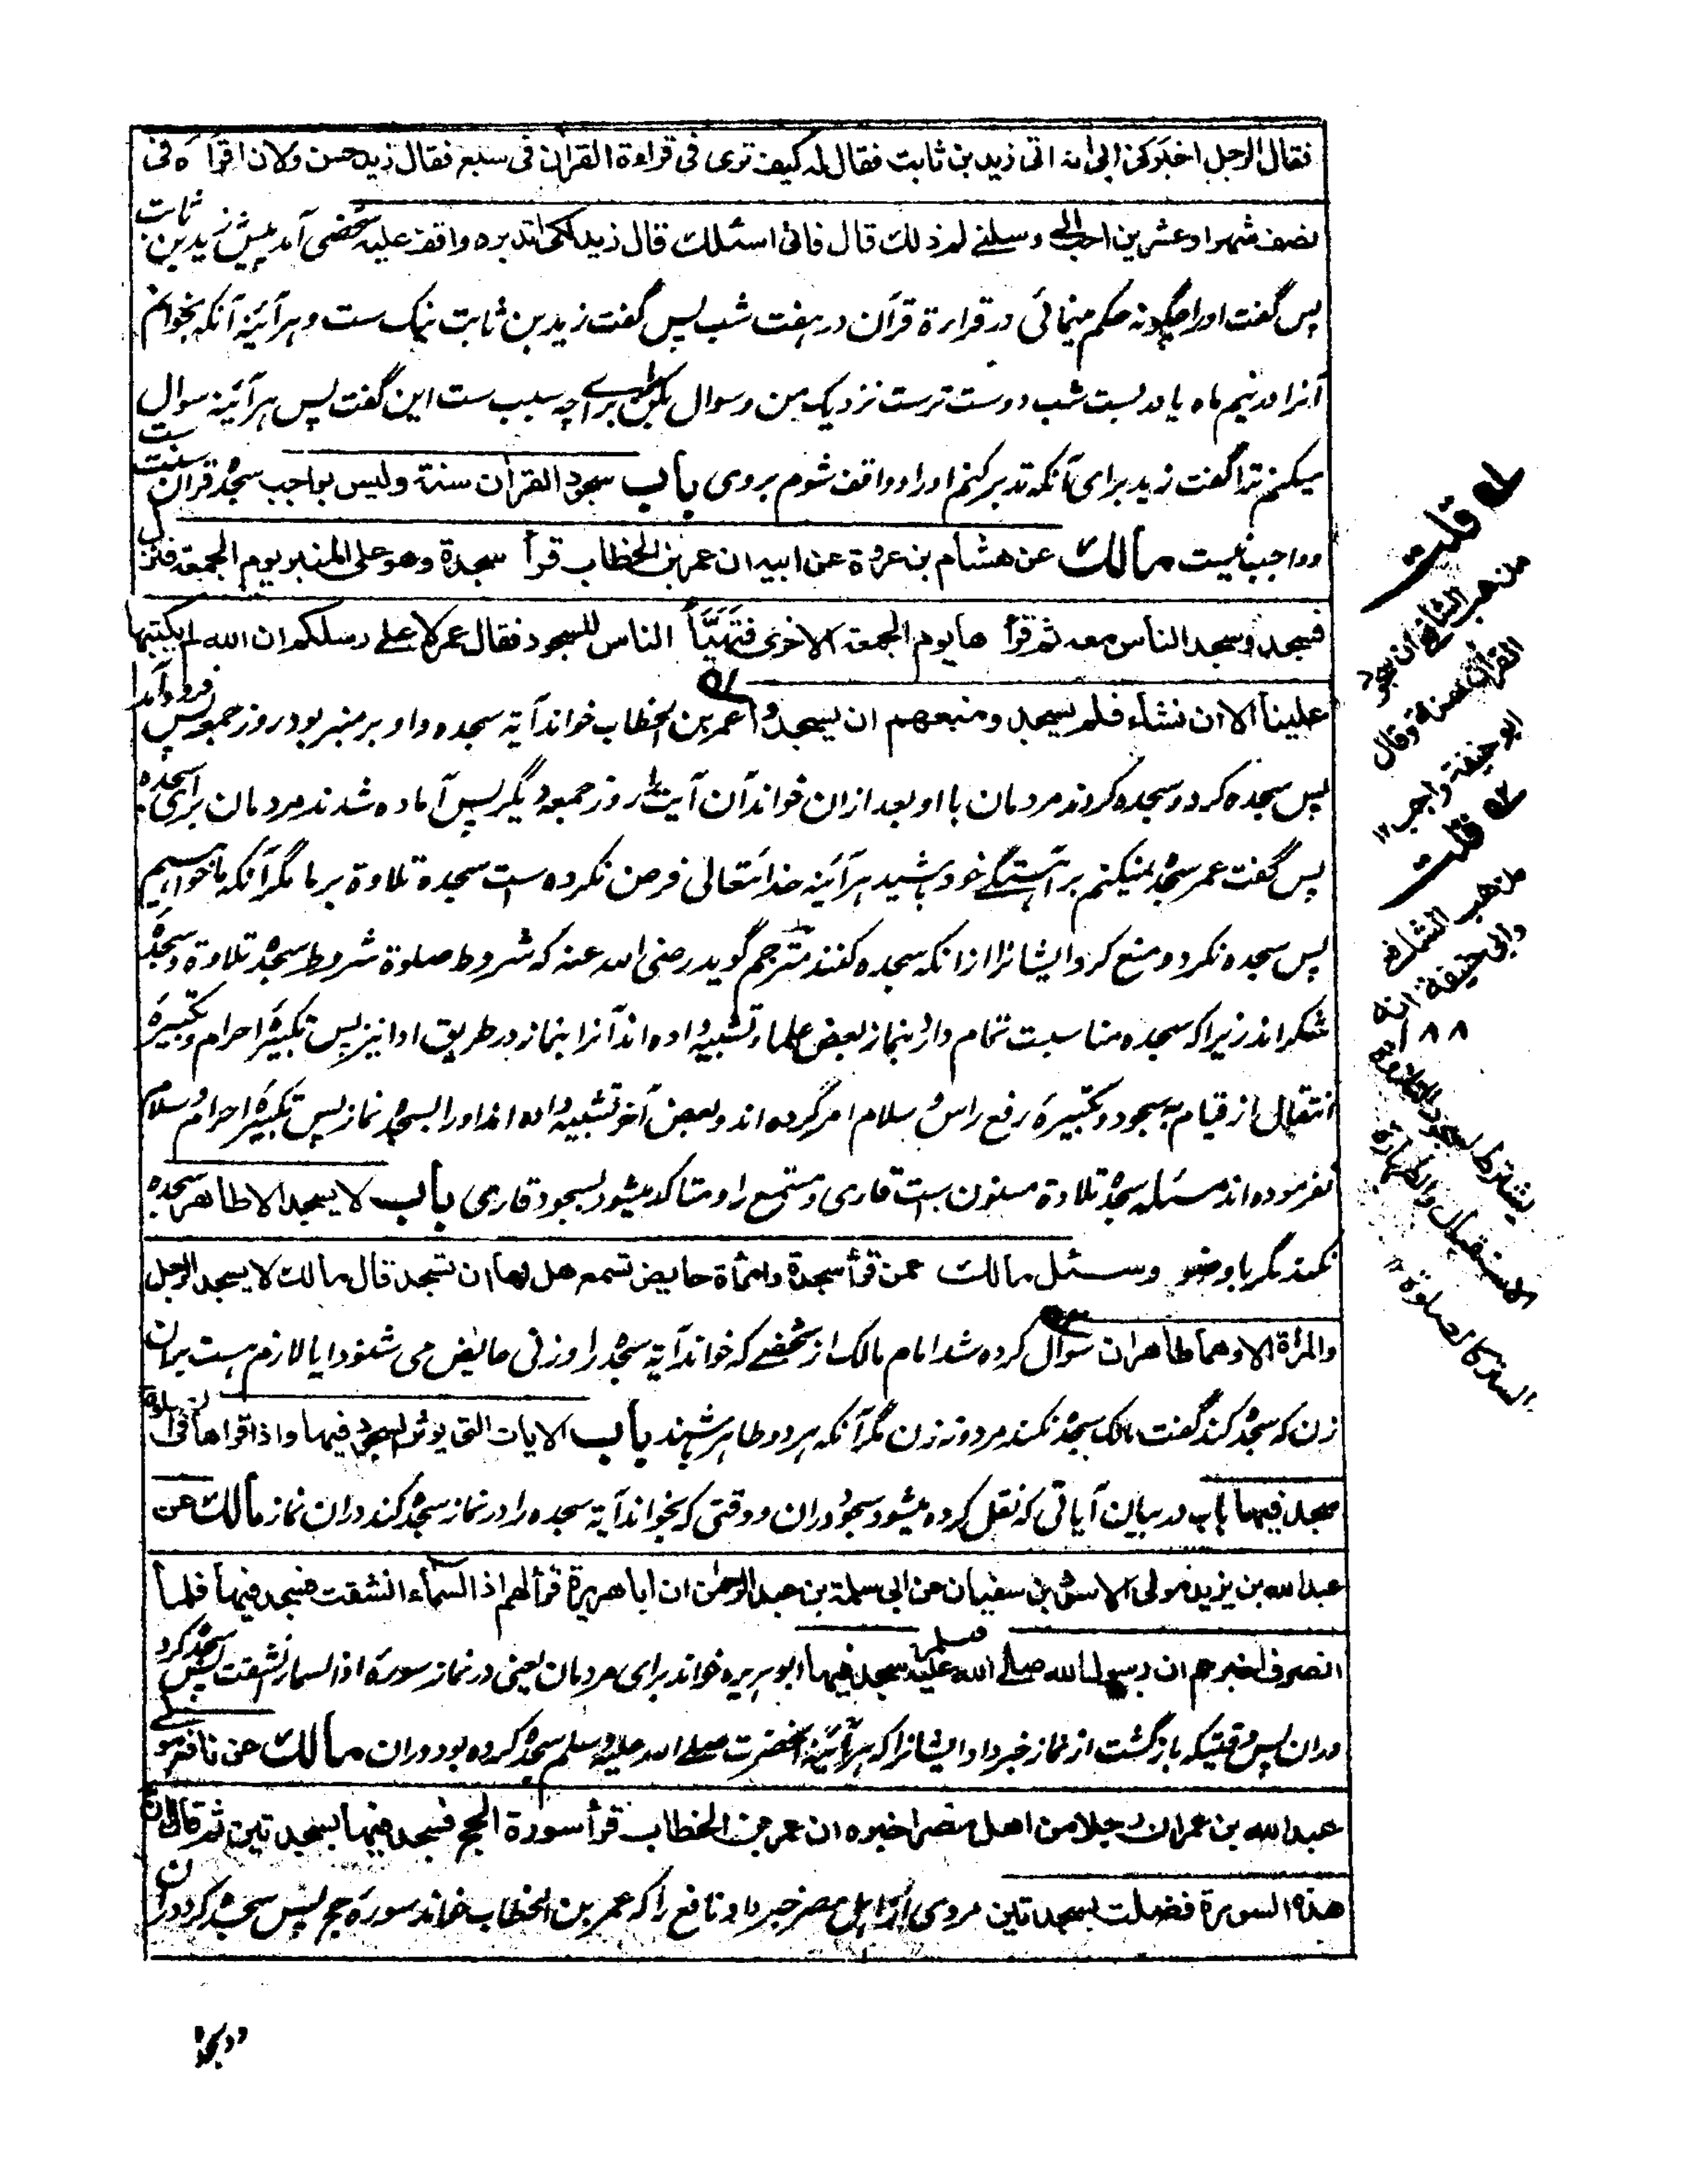 فقال الرجل اخبرنی ابی انه اتی زید بن ثابت فقال له کیف تری فی قراءة القران فی سبع فقال زید حسن ولان اقرأه فی
نصف شهر او عشرین احب الی وسلنی لم ذلك قال فانی اسئلك قال زید لکی اتدبره واقف علیه شخصی آمد پیش زید بن ثابت
پس گفت اورا چگونه حکم مینمائی در قراءة قرآن در هفت شب پس گفت زید بن ثابت نیک ست و هر آئینه آنکه بخوانم
آنرا در نیم ماه یا در بست شب دوست ترست نزدیک من و سوال بکن برای چه سبب ست این گفت پس هر آئینه سوال
میکنم ترا گفت زید برای آنکه تدبر کنم اورا و واقف شوم بروی باب سجود القرأن سنة ولیس بواجب سجدۂ قرآن سنت ست
و واجب نیست مالك عن هشام بن عروة عن ابیه ان عمر بن الخطاب قرأ سجدة وهو علی المنبر یوم الجمعة فنزل
فسجد وسجد الناس معه ثم قرأ ها یوم الجمعة الاخری فتهیّأ الناس للسجود فقال عمر علی رسلکم ان الله لم یکتبها
علینا الا ان نشاء فلم یسجد ومنعهم ان یسجدوا عمر بن الخطاب خواند آیة سجده و او بر منبر بود روز جمعه پس فرود آمد
پس سجده کرد و سجده کردند مردمان با او بعد ازان خواند آن آیت را روز جمعه دیگر پس آماده شدند مردمان برای سجده
پس گفت عمر سجده نمیکنم بر آهستگی خود باشید هر آئینه خدا یتعالی فرض نکرده است سجدۂ تلاوة بر ما مگر آنکه ما خواهیم
پس سجده نکرد و منع کرد ایشانرا ازانکه سجده کنند مترجم گوید رضی الله عنه که شروط صلوة شروط سجدۂ تلاوة و سجدۂ
شکر اند زیرا که سجده مناسبت تمام دارد بنماز بعض علما تشبیه داده اند آنرا بنماز در طریق ادا نیز پس تکبیرۂ احرام و تکبیرۂ
انتقال از قیام به سجود و تکبیرۂ رفع راس و سلام امر کرده اند و بعض آخر تشبیه داده اند اورا بسجدۂ نماز پس تکبیرۂ احرام و سلام
نفرموده اند مسئله سجدۂ تلاوة مسنون ست قاری و مستمع را و متاکد میشود بسجود قاری باب لا یسجد الا طاهر سجده
نکند مگر با وضو وسئل مالك عمن قرأ سجدة وامرأة حایض تسمع هل لها ان تسجد قال مالك لا یسجد الرجل
والمرأة الا وهما طاهران سوال کرده شد امام مالک از شخصے که خواند آیة سجده را و زنی حائض می شنود ایا لازم هست بران
زن که سجده کند گفت مالک سجده نکند مرد و نه زن مگر آنکه هر دو طاهر باشند باب الایات التی یوثر السجود فیها واذا قرأها فی الصلوة
سجد فیها باب در بیان آیاتی که نقل کرده میشود سجود دران و وقتی که بخواند آیة سجده را در نماز سجده کند دران نماز مالك عن
عبد الله بن یزید مولی الاسود بن سفیان عن ابی سلمة بن عبد الرحمن ان ابا هریرة قرأ لهم اذا السماء انشقت فسجد فیها فلما
انصرف اخبرهم ان رسول الله صلے الله علیه وسلم سجد فیها ابو هریره خواند برای مردمان یعنی در نماز سورۂ اذا السماء انشقت پس سجده کرد
دران پس وقتیکه بازگشت از نماز خبر داد ایشانرا که هر آئینه آنحضرت صلے الله علیه وسلم سجده کرده بود دران مالك عن نافع مولی
عبد الله بن عمر ان رجلا من اهل مصر اخبره ان عمر بن الخطاب قرأ سورة الحج فسجد فیها سجدتین ثم قال ان
هذه السورة فضلت بسجدتین مردی از اهل مصر خبر داد نافع را که عمر بن الخطاب خواند سورۂ حج پس سجده کرد دران
دو سجده
قلت
مذهب الشافعی ان سجود
القرآن سنة وقال
ابو حنیفة واجب ۱۲
قلت
مذهب الشافعی
وابی حنیفة انه
یشترط لسجود التلاوة
الاستقبال والطهارة
الستر کالصلوة ۱۲